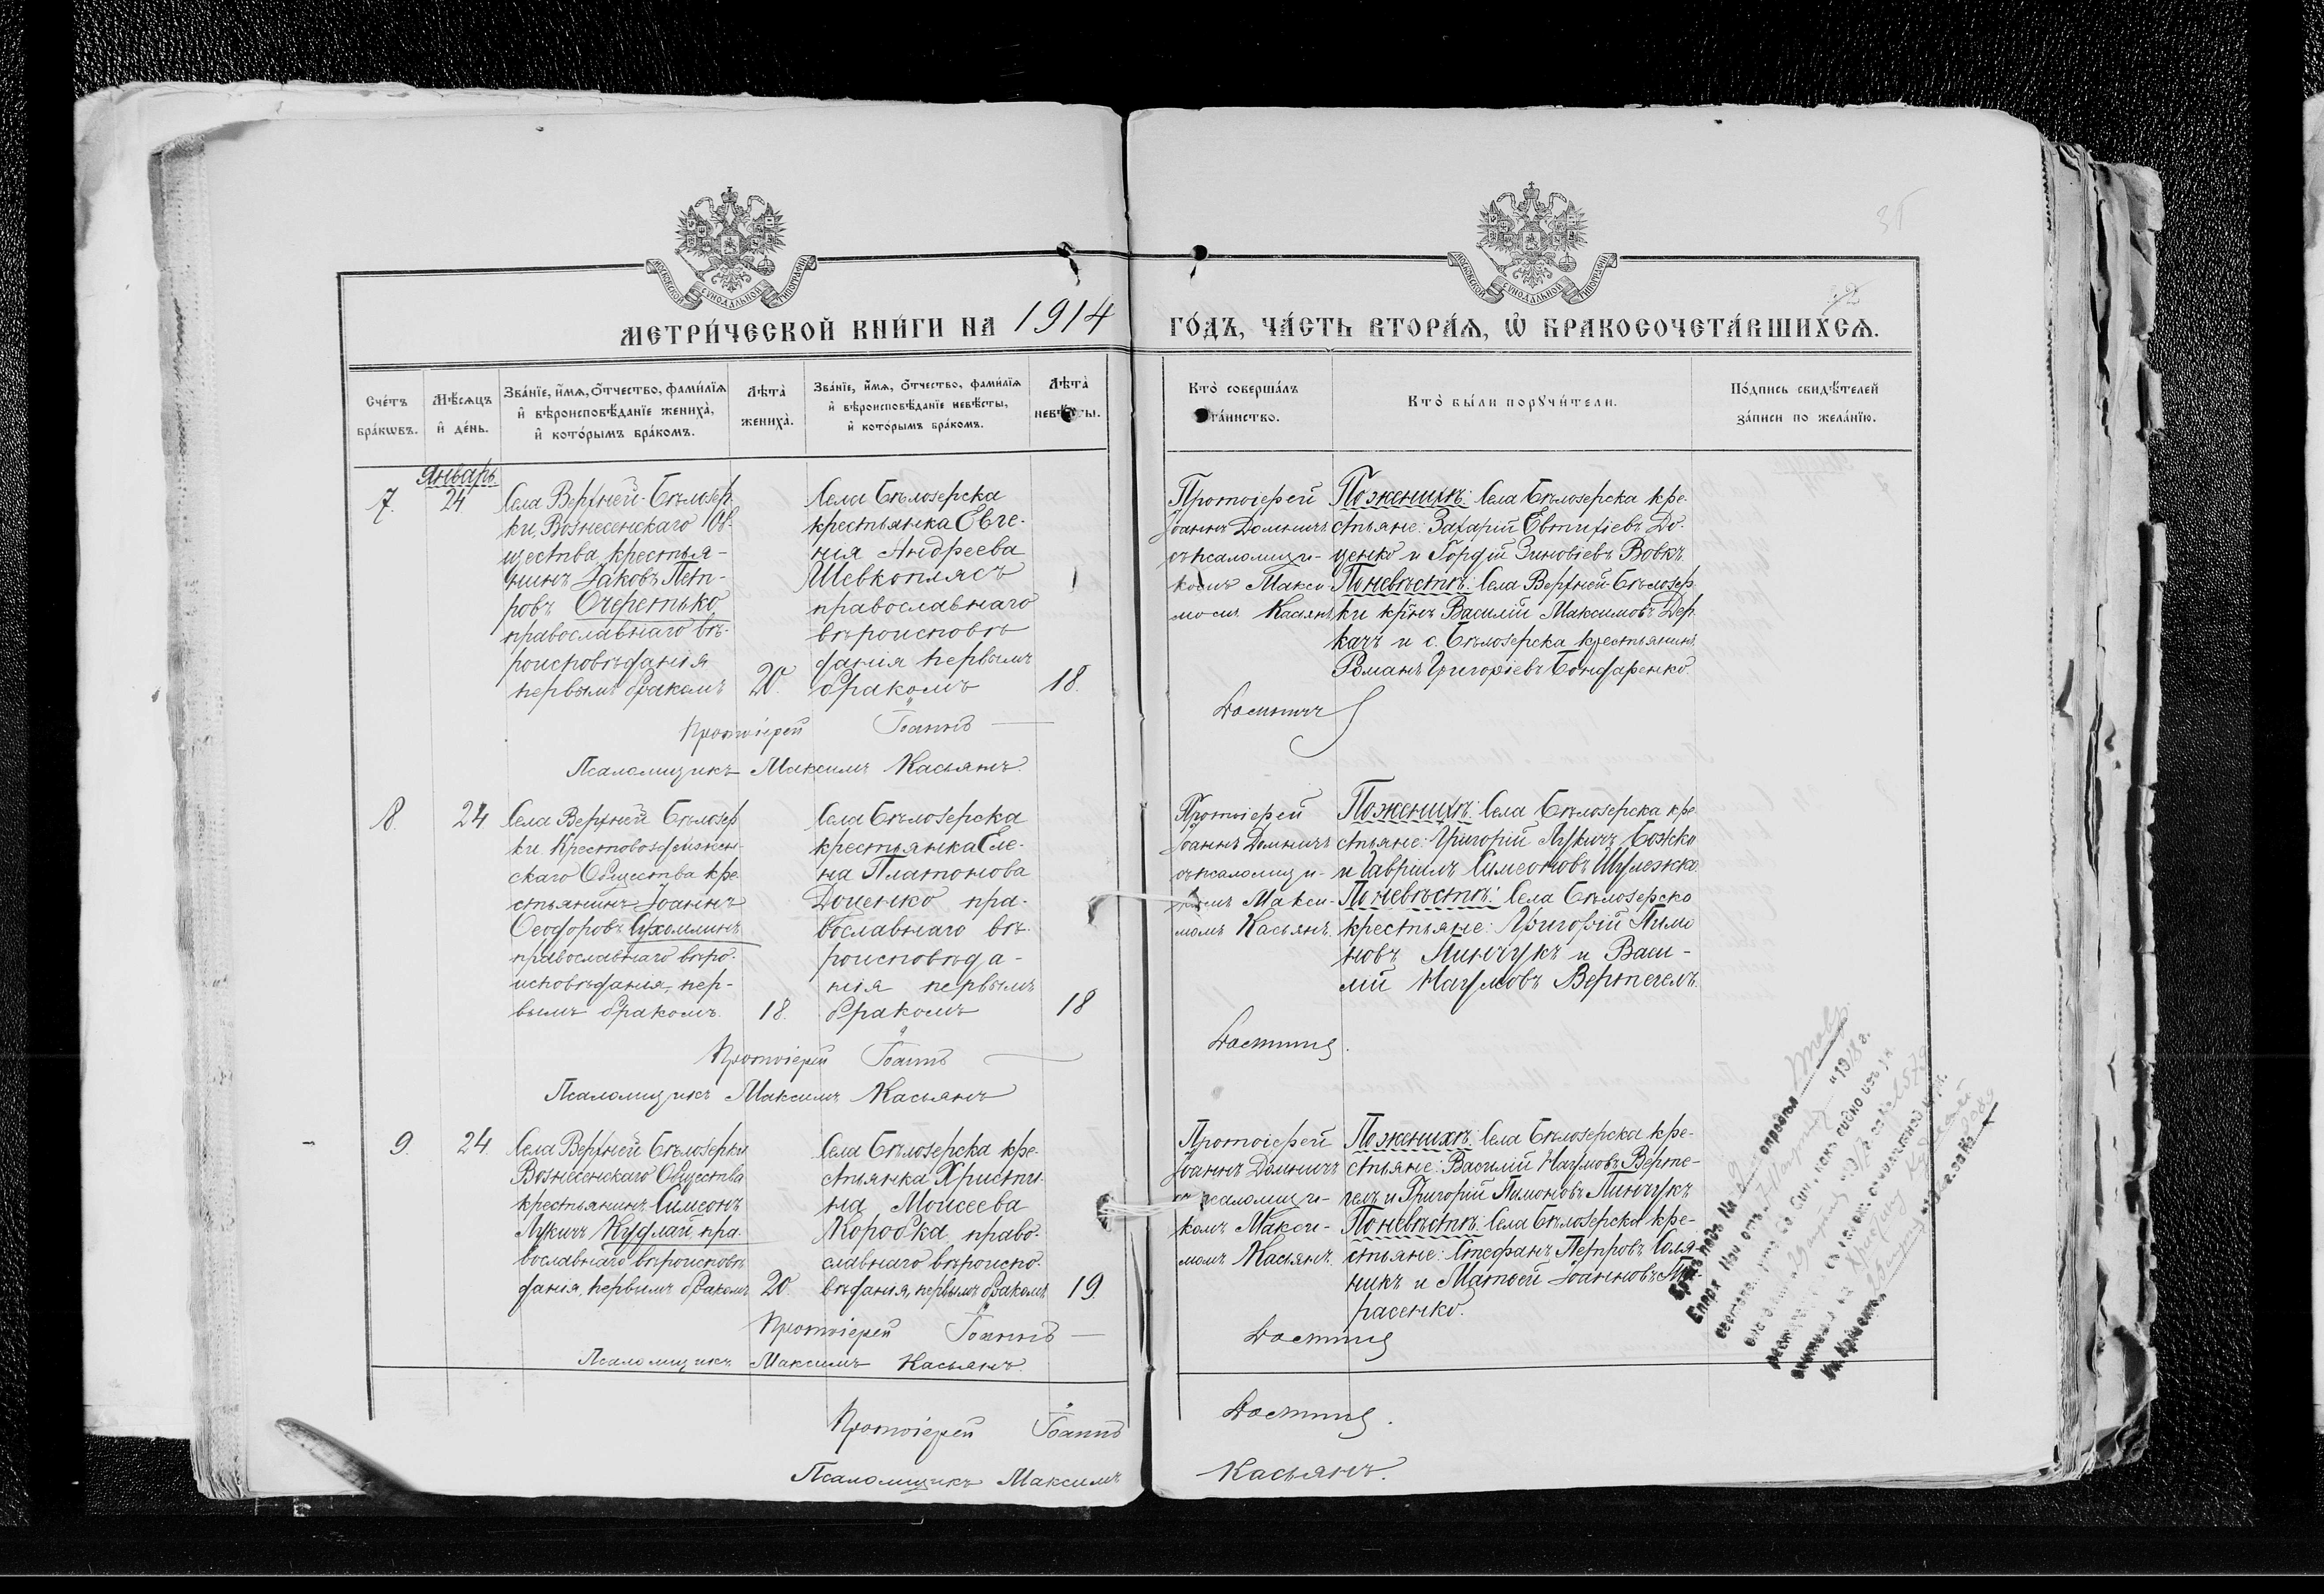 МОСКОВСКОЙ СѴНОДАЛЬНОЙ ТИПОГРАФІИ
МОСКОВСКОЙ СѴНОДАЛЬНОЙ ТИПОГРАФІИ
МЕТРИ́ЧЕСКОЙ КНИ́ГИ НА 1914 ГО́ДЪ, ЧА́СТЬ ВТОРА́Ѧ, Ѡ҆ БРАКОСОЧЕТА́ВШИХСѦ.
Сче́тъ бра́кѡвъ.
Мѣ́сѧцъ и҆ де́нь.
Зва́нїе, и҆́мѧ, ѻ҆́тчество, фами́лїѧ
и҆ вѣроисповѣ́данїе жениха̀,
и҆ кото́рымъ бра́комъ.
Лѣта̀ жениха̀.
Зва́нїе, и҆́мѧ, ѻ҆́тчество, фами́лїѧ
и҆ вѣроисповѣ́данїе невѣ́сты,
и҆ кото́рымъ бра́комъ.
Лѣта̀ невѣ́сты.
Кто̀ соверша́лъ та́инство.
Кто̀ бы́ли порꙋчи́тели.
По́дпись свидѣ́телей
за́писи по жела́нїю.
Январь
7.
24
Села Верхней-Бѣлозер
ки, Вознесенскаго Об-
щества, крестья-
нинъ Іаковъ Пет-
ровъ Очеретько
православнаго вѣ-
роисповѣданія
первымъ бракомъ
20.
Села Бѣлозерска
крестьянка Евге-
нія Андреева
Шевкоплясъ
православнаго
вѣроисповѣ
данія первымъ
бракомъ
18.
Протоіерей
Іоаннъ
съ псаломщи-
комъ Макси
момъ Касьянъ
По женихѣ: Села Бѣлозерска кре
стьяне: Захарій Евтихіевъ До-
ценко и Гордій Зиновіевъ Вовкъ.
По невѣстѣ: Села Верхней-Бѣлозер
ки кр-нъ Василій Максимовъ Дер
качъ и с. Бѣлозерска крестьянинъ
Романъ Григоріевъ Бондаренко.
Протоіерей Іоаннъ
Псаломщикъ Максимъ Касьянъ.
8.
24
Села Верхней Бѣлозер
ки, Крестовоздвижен-
скаго Общества кре
стьянинъ Іоаннъ
Ѳеодоровъ Сухомлинъ
православнаго вѣро-
исповѣданія, пер-
вымъ бракомъ.
18.
Села Бѣлозерска
крестьянка Еле-
на Платонова
Доценко пра-
вославнаго вѣ-
роисповѣда-
нія первымъ
бракомъ
18
Протоіерей
Іоаннъ
съ псаломщи-
комъ Макси-
момъ Касьянъ.
По женихѣ: Села Бѣлозерска кре
стьяне: Григорій Лукичъ Божко
и Гавріилъ Симеоновъ Шулежко.
По невѣстѣ: Села Бѣлозерско
крестьяне: Григорій Пимо
новъ Пинчукъ и Васи-
лій Наумовъ Вертегелъ.
Протоіерей Іоаннъ
Псаломщикъ Максимъ Касьянъ
9.
24.
Села Верхней Бѣлозерки
Вознесенскаго Общества
крестьянинъ Симеонъ
Лукичъ Кудлай, пра-
вославнаго вѣроисповѣ
данія, первымъ бракомъ
20.
Села Бѣлозерска кре-
стьянка Христи-
на Моисеева
Коробка право-
славнаго вѣроиспо-
вѣданія, первымъ бракомъ
19.
Протоіерей
Іоаннъ
съ псаломщи-
комъ Макси-
момъ Касьянъ.
По женихѣ: Села Бѣлозерска кре-
стьяне: Василій Наумовъ Верте-
гелъ и Григорій Пимоновъ Пинчукъ
По невѣстѣ: Села Бѣлозерска кре-
стьяне: Стефанъ Петровъ Соля-
никъ и Матѳей Іоанновъ Та-
расенко.
Протоіерей Іоаннъ
Псаломщикъ Максимъ Касьянъ.
Протоіерей Іоаннъ
Псаломщикъ Максимъ Касьянъ.